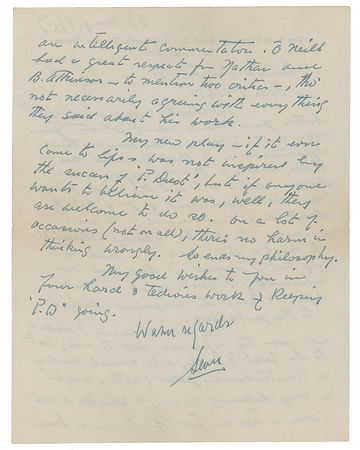 an intelligent commentator. O'Neill
had a great respect for Nathan and
B. Atkinson – to mention two critics –, tho'
not necessarily agreeing with everything
they said about his work.
My new play – if it ever
come to life, was not inspired by
the success of "P. Dust", but if anyone
wants to believe it was, well, they
are welcome to do so. On a lot of
occasions (not on all), there's no harm in
thinking wrongly. So ends my philosophy.
My good wishes to you in
your hard & tedious work of keeping
"P.D" going.
Warm regards
Sean